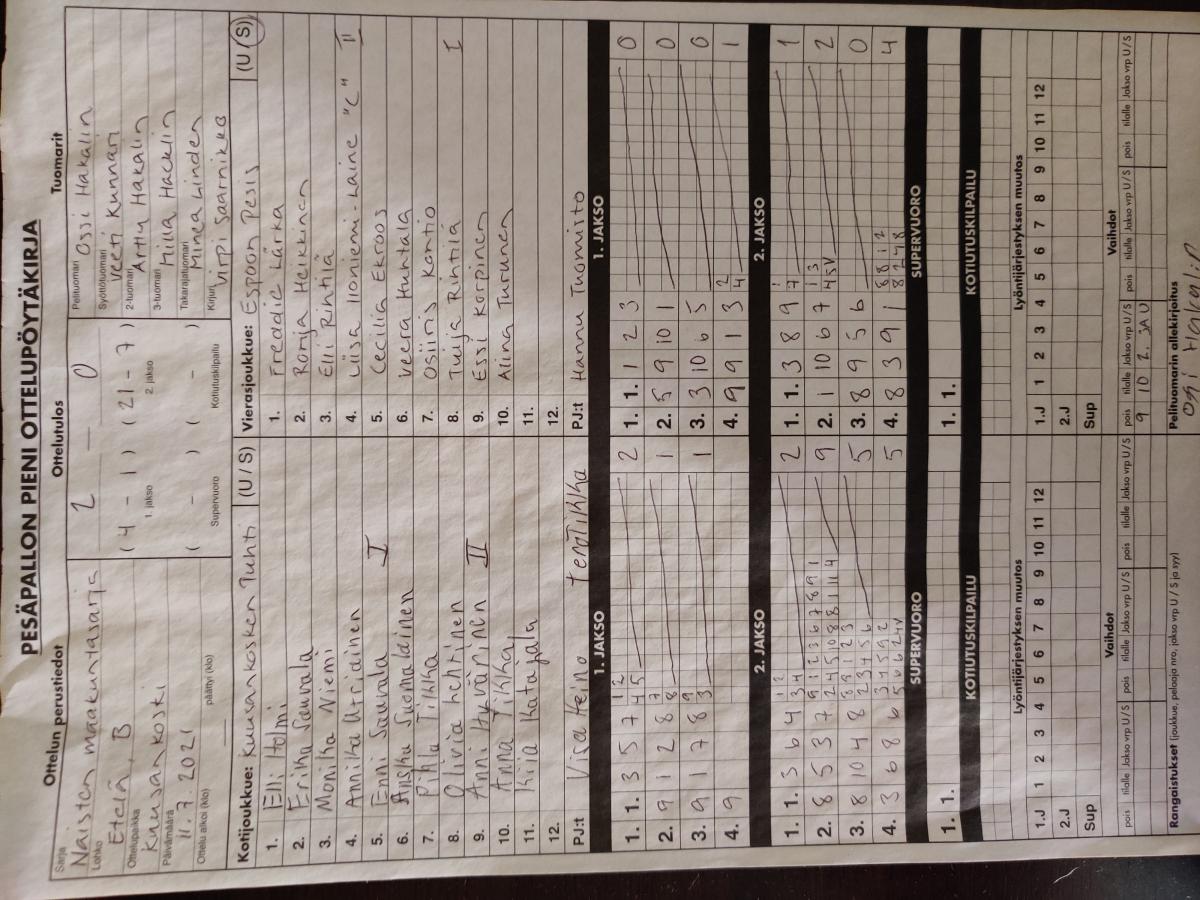 PESÄPALLON PIENI OTTELUPÖYTÄKIRJA
Ottelun perustiedot
Sarja
Naisten maakuntasarja
Lohko
Etelä, B
Ottelupaikka
Kuusankoski
Päivämäärä
11.7.2021
Ottelu alkoi (klo)
päättyi (klo)
Ottelutulos
2 — 0
( 4 - 1 ) ( 21 - 7 )
1. jakso 2. jakso
( - ) ( - )
Supervuoro Kotiutuskilpailu
Tuomarit
Pelituomari Ossi Hakalin
Syöttötuomari Veeti Kunnari
2-tuomari Arttu Hakalin
3-tuomari Milla Hacklin
Takarajatuomari Minea Linden
Kirjuri Virpi Saarnikko
Kotijoukkue: Kuusankosken Puhti (U / S)
1. Elli Holmi
2. Erika Sauvala
3. Monika Niemi
4. Annika Utriainen
5. Enni Sauvala I
6. Anshu Suomalainen
7. Pihla Tikka
8. Olivia Lehtinen
9. Anni Hyvärinen II
10. Anna Tikka
11. Kiia Katajala
12.
PJ:t Visa Heino Tero Tikka
Vierasjoukkue: Espoon Pesis (U / S)
1. Freddie Lärka
2. Ronja Heikkinen
3. Elli Rihtilä
4. Liisa Iloniemi-Laine "C" II
5. Cecilia Ekroos
6. Veera Huhtala
7. Osiiris Kontio
8. Tuija Rihtilä I
9. Essi Korpinen
10. Aliina Turunen
11.
12.
PJ:t Hannu Tuomisto
1. JAKSO
1. 1. 3 5 7 4 5 1 2 2
2. 9 1 2 8 8 7 1
3. 9 1 7 8 3 9 1
4. 9
1. JAKSO
1. 1. 1 2 3 0
2. 5 9 10 1 0
3. 3 10 6 5 0
4. 9 9 1 3 4 2 1
2. JAKSO
1. 1. 3 6 4 3 4 1 2 2
2. 8 5 3 7 9
3. 8 10 4 8 5
4. 3 6 8 6 5
2. JAKSO
1. 1. 3 8 9 7 1 1
2. 1 10 6 7 2
3. 8 9 5 6 0
4. 8 3 9 1 4
SUPERVUORO
1. 1.
SUPERVUORO
1. 1.
KOTIUTUSKILPAILU
KOTIUTUSKILPAILU
Lyöntijärjestyksen muutos
1.J 1 2 3 4 5 6 7 8 9 10 11 12
2.J
Sup
Lyöntijärjestyksen muutos
1.J 1 2 3 4 5 6 7 8 9 10 11 12
2.J
Sup
Vaihdot
pois tilalle Jakso vrp U/S pois tilalle Jakso vrp U/S pois tilalle Jakso vrp U/S
Vaihdot
pois tilalle Jakso vrp U/S pois tilalle Jakso vrp U/S pois tilalle Jakso vrp U/S
9 10 2. JA U
Rangaistukset (joukkue, pelaaja nro, jakso vrp U / S ja syy)
Pelituomarin allekirjoitus
Ossi Hakalin